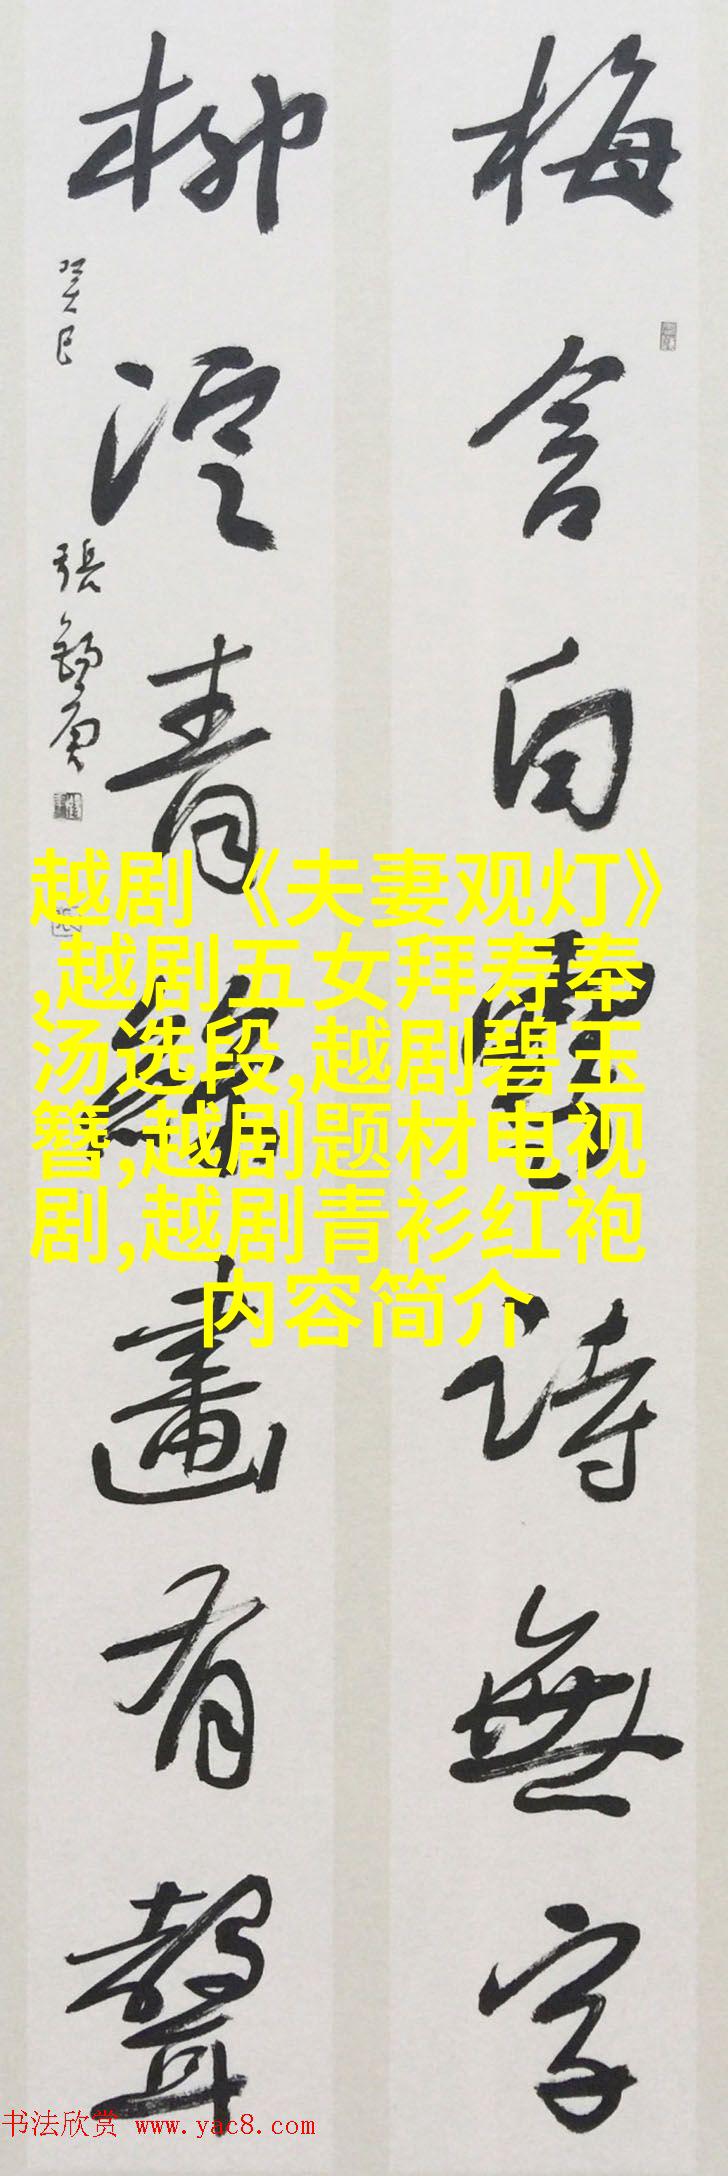 梅含白雪詩無字
柳渲青絲畫有聲
癸巳
越剧《夫妻观灯》
,越剧五女拜寿奉
汤选段,越剧碧玉
簪,越剧题材电视
剧,越剧青衫红袍
内容简介
书法欣赏 www.yac8.com